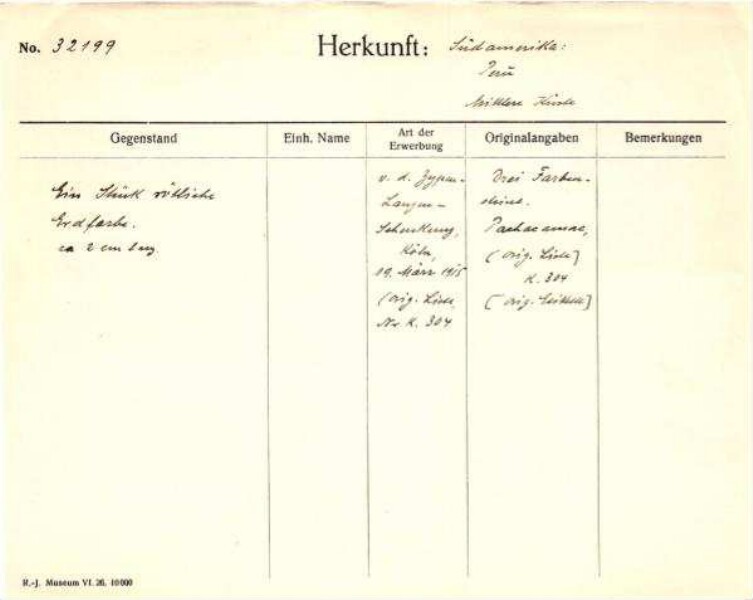 No. 32199
Herkunft: Südamerika:
Peru
Mittlere Küste
Gegenstand
Einh. Name
Art der Erwerbung
Originalangaben
Bemerkungen
Ein Stück rötliche
Erdfarbe.
ca 2 cm lang.
v. d. Zypen-
Langen-
Schenkung,
Köln,
19. März 1915
(orig. Liste,
Nr. K. 304
Drei Farben-
steine.
Pachacamac,
(orig. Liste]
K. 304
[orig. Etikette]
R.-J. Museum VI. 26. 10000